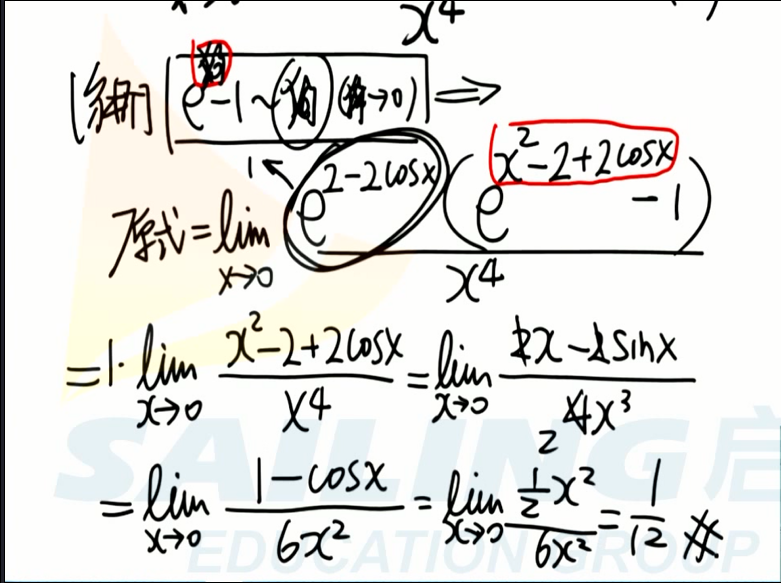 x⁴
e -1 ~ ( →0) ⇒
原式 = lim x→0 e^(2-2cosx) (e^(x²-2+2cosx) -1) / x⁴
1
= 1· lim x→0 (x²-2+2cosx) / x⁴ = lim x→0 (2x-2sinx) / 4x³
2
= lim x→0 (1-cosx) / 6x² = lim x→0 (1/2 x²) / 6x² = 1/12 #
SAILING 启
EDUCATION GROUP